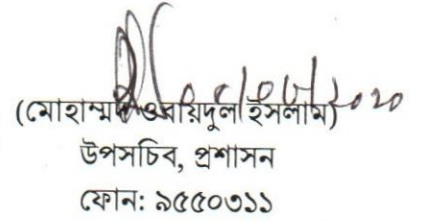 (মোহাম্মদ ওবায়দুল ইসলাম)
উপসচিব, প্রশাসন
ফোন: ৯৫৫০৩১১